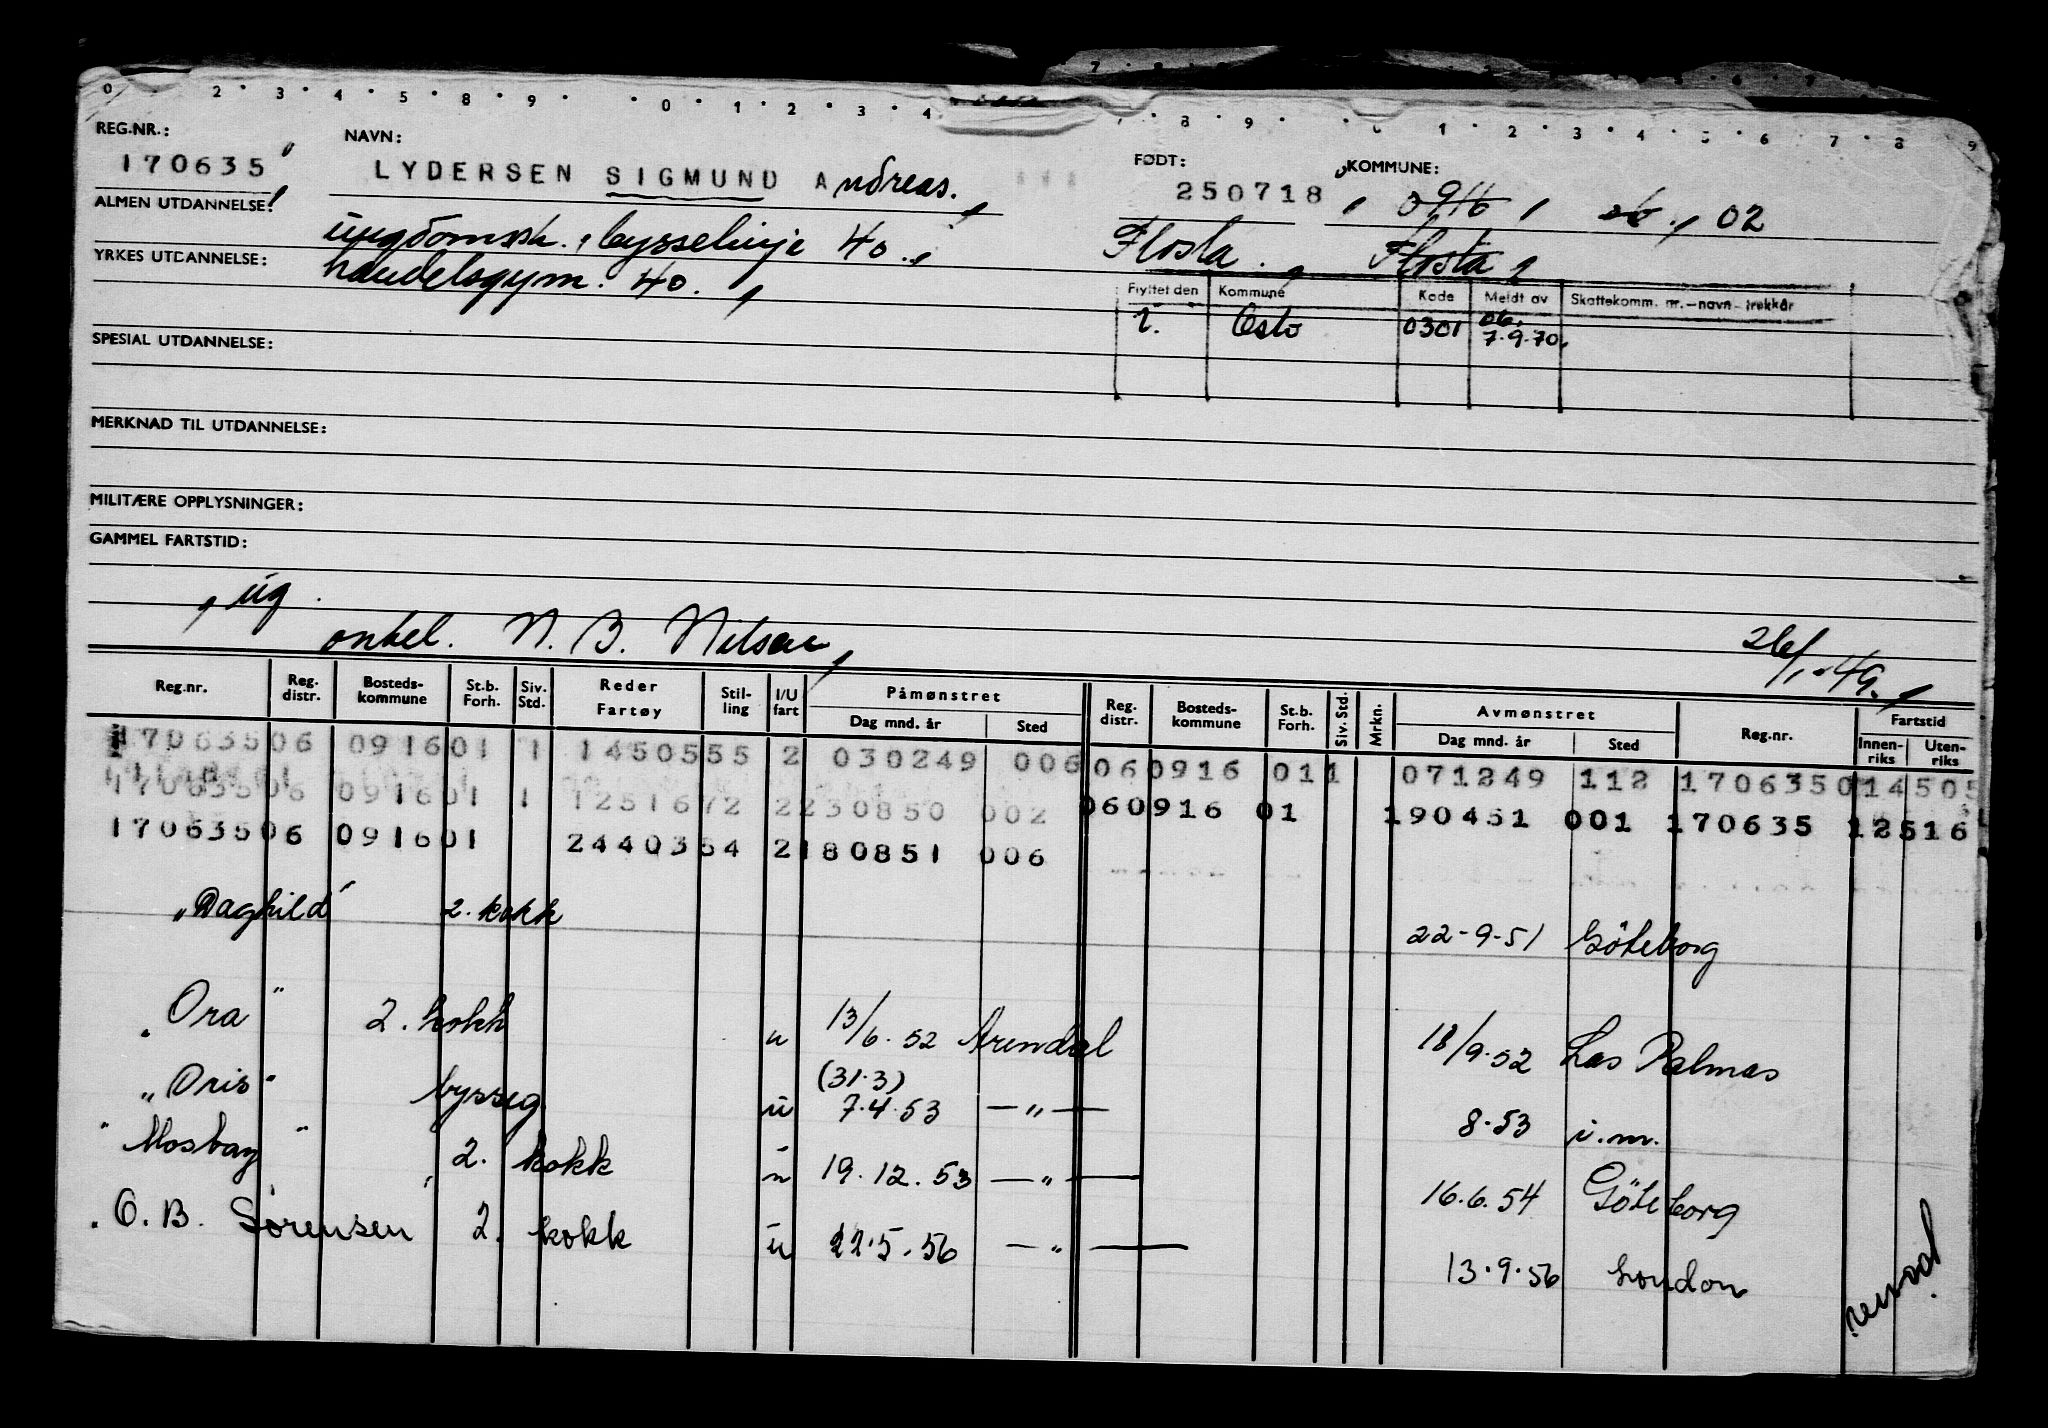 0 2 • 3 • 4 • 5 • 8 • 9 • • 0 • 1 • 2 • 3 • 4 • 8 • 9 • • 0 1 • 2 • 3 • 4 • 5 • 6 • 7 • 8 • 9
REG.NR.: NAVN: FØDT: KOMMUNE:
170635 LYDERSEN SIGMUND Andreas. 250718 0916 06 02
ALMEN UTDANNELSE: ungdomssk., bysselinje 40. Flosta Flosta
YRKES UTDANNELSE: handelsgym. 40.
Flyttet den Kommune Kode Meldt av Skattekomm. nr.-navn-trekkår
Oslo 0301 06. 7.9.70
SPESIAL UTDANNELSE:
MERKNAD TIL UTDANNELSE:
MILITÆRE OPPLYSNINGER:
GAMMEL FARTSTID:
ug
onkel. N. B. Nilsen 26/1-49.
Reg.nr. Reg. distr. Bosteds-kommune St.b. Forh. Siv. Std. Reder Fartøy Stil-ling I/U fart Påmønstret Dag mnd. år Sted Reg. distr. Bosteds-kommune St.b. Forh. Siv. Std. Mrkn. Avmønstret Dag mnd. år Sted Reg.nr. Fartstid Innen-riks Uten-riks
17063506 091601 1 1450555 2 030249 006 060916 011 071249 112 170635014505
17063506 091601 1 1251672 2230850 002 060916 01 190451 001 170635 12516
17063506 091601 2440354 2180851 006
"Daghild" 2. kokk 22-9-51 Göteborg
"Ora" 2. kokk u 13/6.52 Arendal 18/9.52 Las Palmas
"Oris" bysseg u (31.3) 7.4.53 —"— 8.53 i.m.
"Mosbay" 2. kokk u 19.12.53 —"— 16.6.54 Göteborg
O. B. Sørensen 2. kokk u 22.5.56 —"— 13.9.56 London